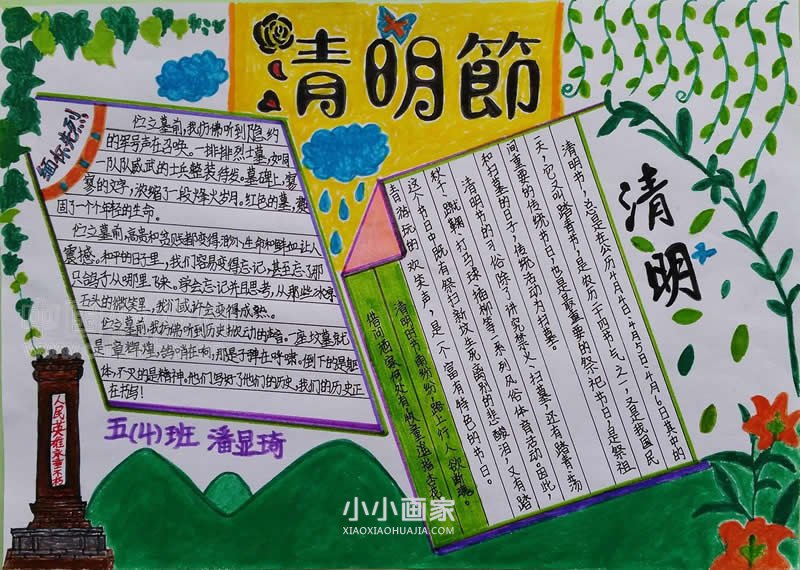 清明節
缅怀先烈!!
伫立墓前,我仿佛听到隐约
的军号声在召唤。一排排烈士墓,如同
一队队威武的士兵整装待发。墓碑上,寥
寥的文字,浓缩了一段烽火岁月。红色的墓,凝
固了一个个年轻的生命。
伫立墓前,高贵和贫贱都变得渺小,生命和鲜血让人
震撼。和平的日子里,我们容易变得忘记,甚至忘了那
只鸽子从哪里飞来。学会忘记并且思考,从那些冰凉
石头的微笑里,我们或许会变得成熟。
伫立墓前,我仿佛听到历史搬动的声音。一座坟墓就
是一章辉煌,鸽哨在响,那是子弹在呼啸。倒下的是躯
体,不灭的是精神。他们写好了他们的历史,我们的历史正
在书写!
五(4)班 潘显琦
人民英雄永垂不朽
清明
清明节,总是在公历4月4日、4月5日、4月6日其中的
一天,它又叫踏青节,是农历二十四节气之一,又是我国民
间重要的传统节日,也是最重要的祭祀节日,是祭祖
和扫墓的日子,传统活动为扫墓。
清明节的习俗,除了讲究禁火、扫墓,还有踏青、荡
秋千、蹴鞠、打马球、插柳等一系列风俗体育活动。因此,
这个节日中既有祭扫新坟生死离别的悲酸泪,又有踏
青游玩的欢笑声,是一个富有特色的节日。
清明时节雨纷纷,路上行人欲断魂。
借问酒家何处有,牧童遥指杏花村。
小小画家
XIAOXIAOHUAJIA.COM